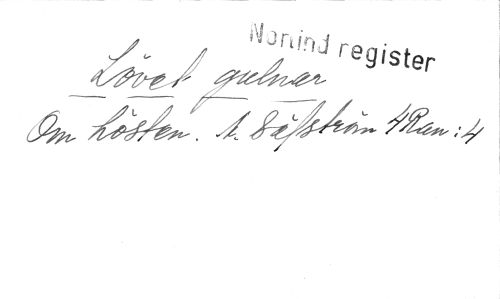 Norrlnd register
Lövet gulnar
Om hösten. A. Säfström 4 Ran: 4